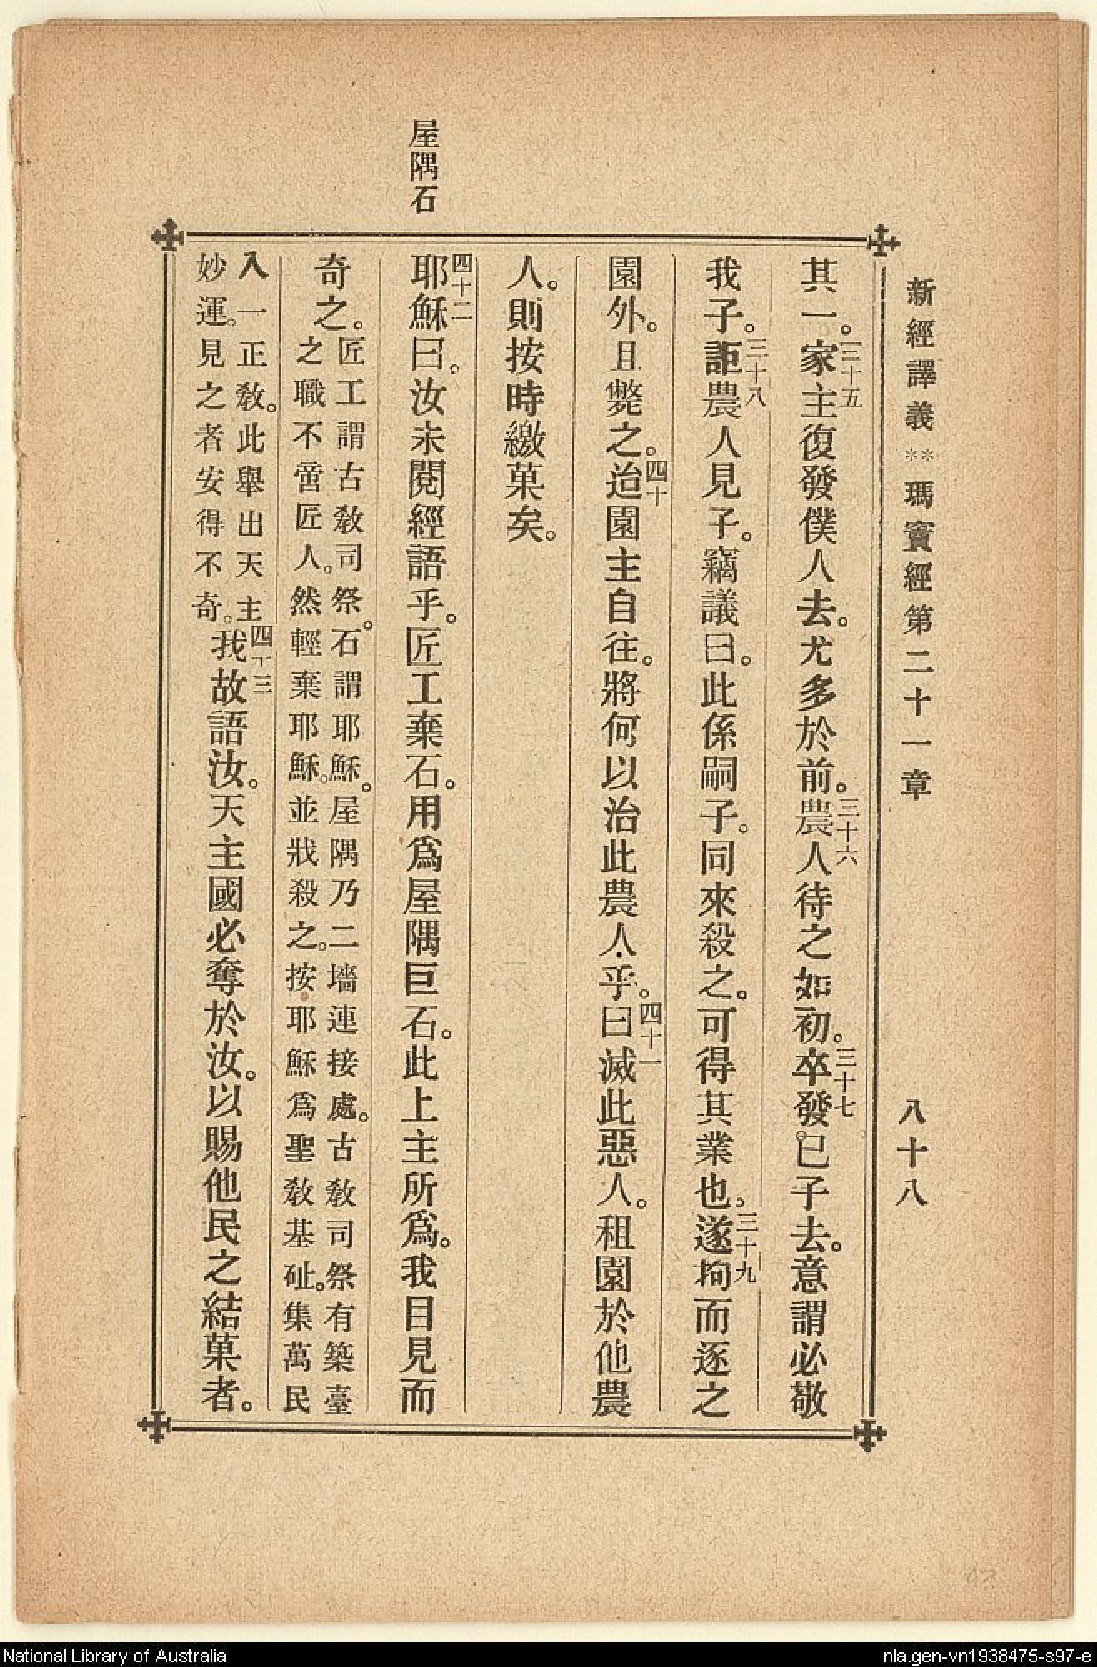 新經譯義 ** 瑪竇經第二十一章 八十八
其一。三十五家主復發僕人去。尤多於前。三十六農人待之如初。三十七卒發己子去。意謂必敬
我子。三十八詎農人見子。竊議曰。此係嗣子。同來殺之。可得其業也。三十九遂拘而逐之
園外。且斃之。四十迨園主自往。將何以治此農人乎。四十一曰滅此惡人。租園於他農
人。則按時繳菓矣。
屋隅石
四十二耶穌曰。汝未閱經語乎。匠工棄石。用爲屋隅巨石。此上主所爲。我目見而
奇之。
匠工謂古敎司祭。石謂耶穌。屋隅乃二墻連接處。古敎司祭有築臺
之職不啻匠人。然輕棄耶穌。並戕殺之。按耶穌爲聖敎基址。集萬民
入一正敎。此舉出天主
妙運。見之者安得不奇。
四十三我故語汝。天主國必奪於汝。以賜他民之結菓者。
National Library of Australia
nla.gen-vn1938475-s97-e